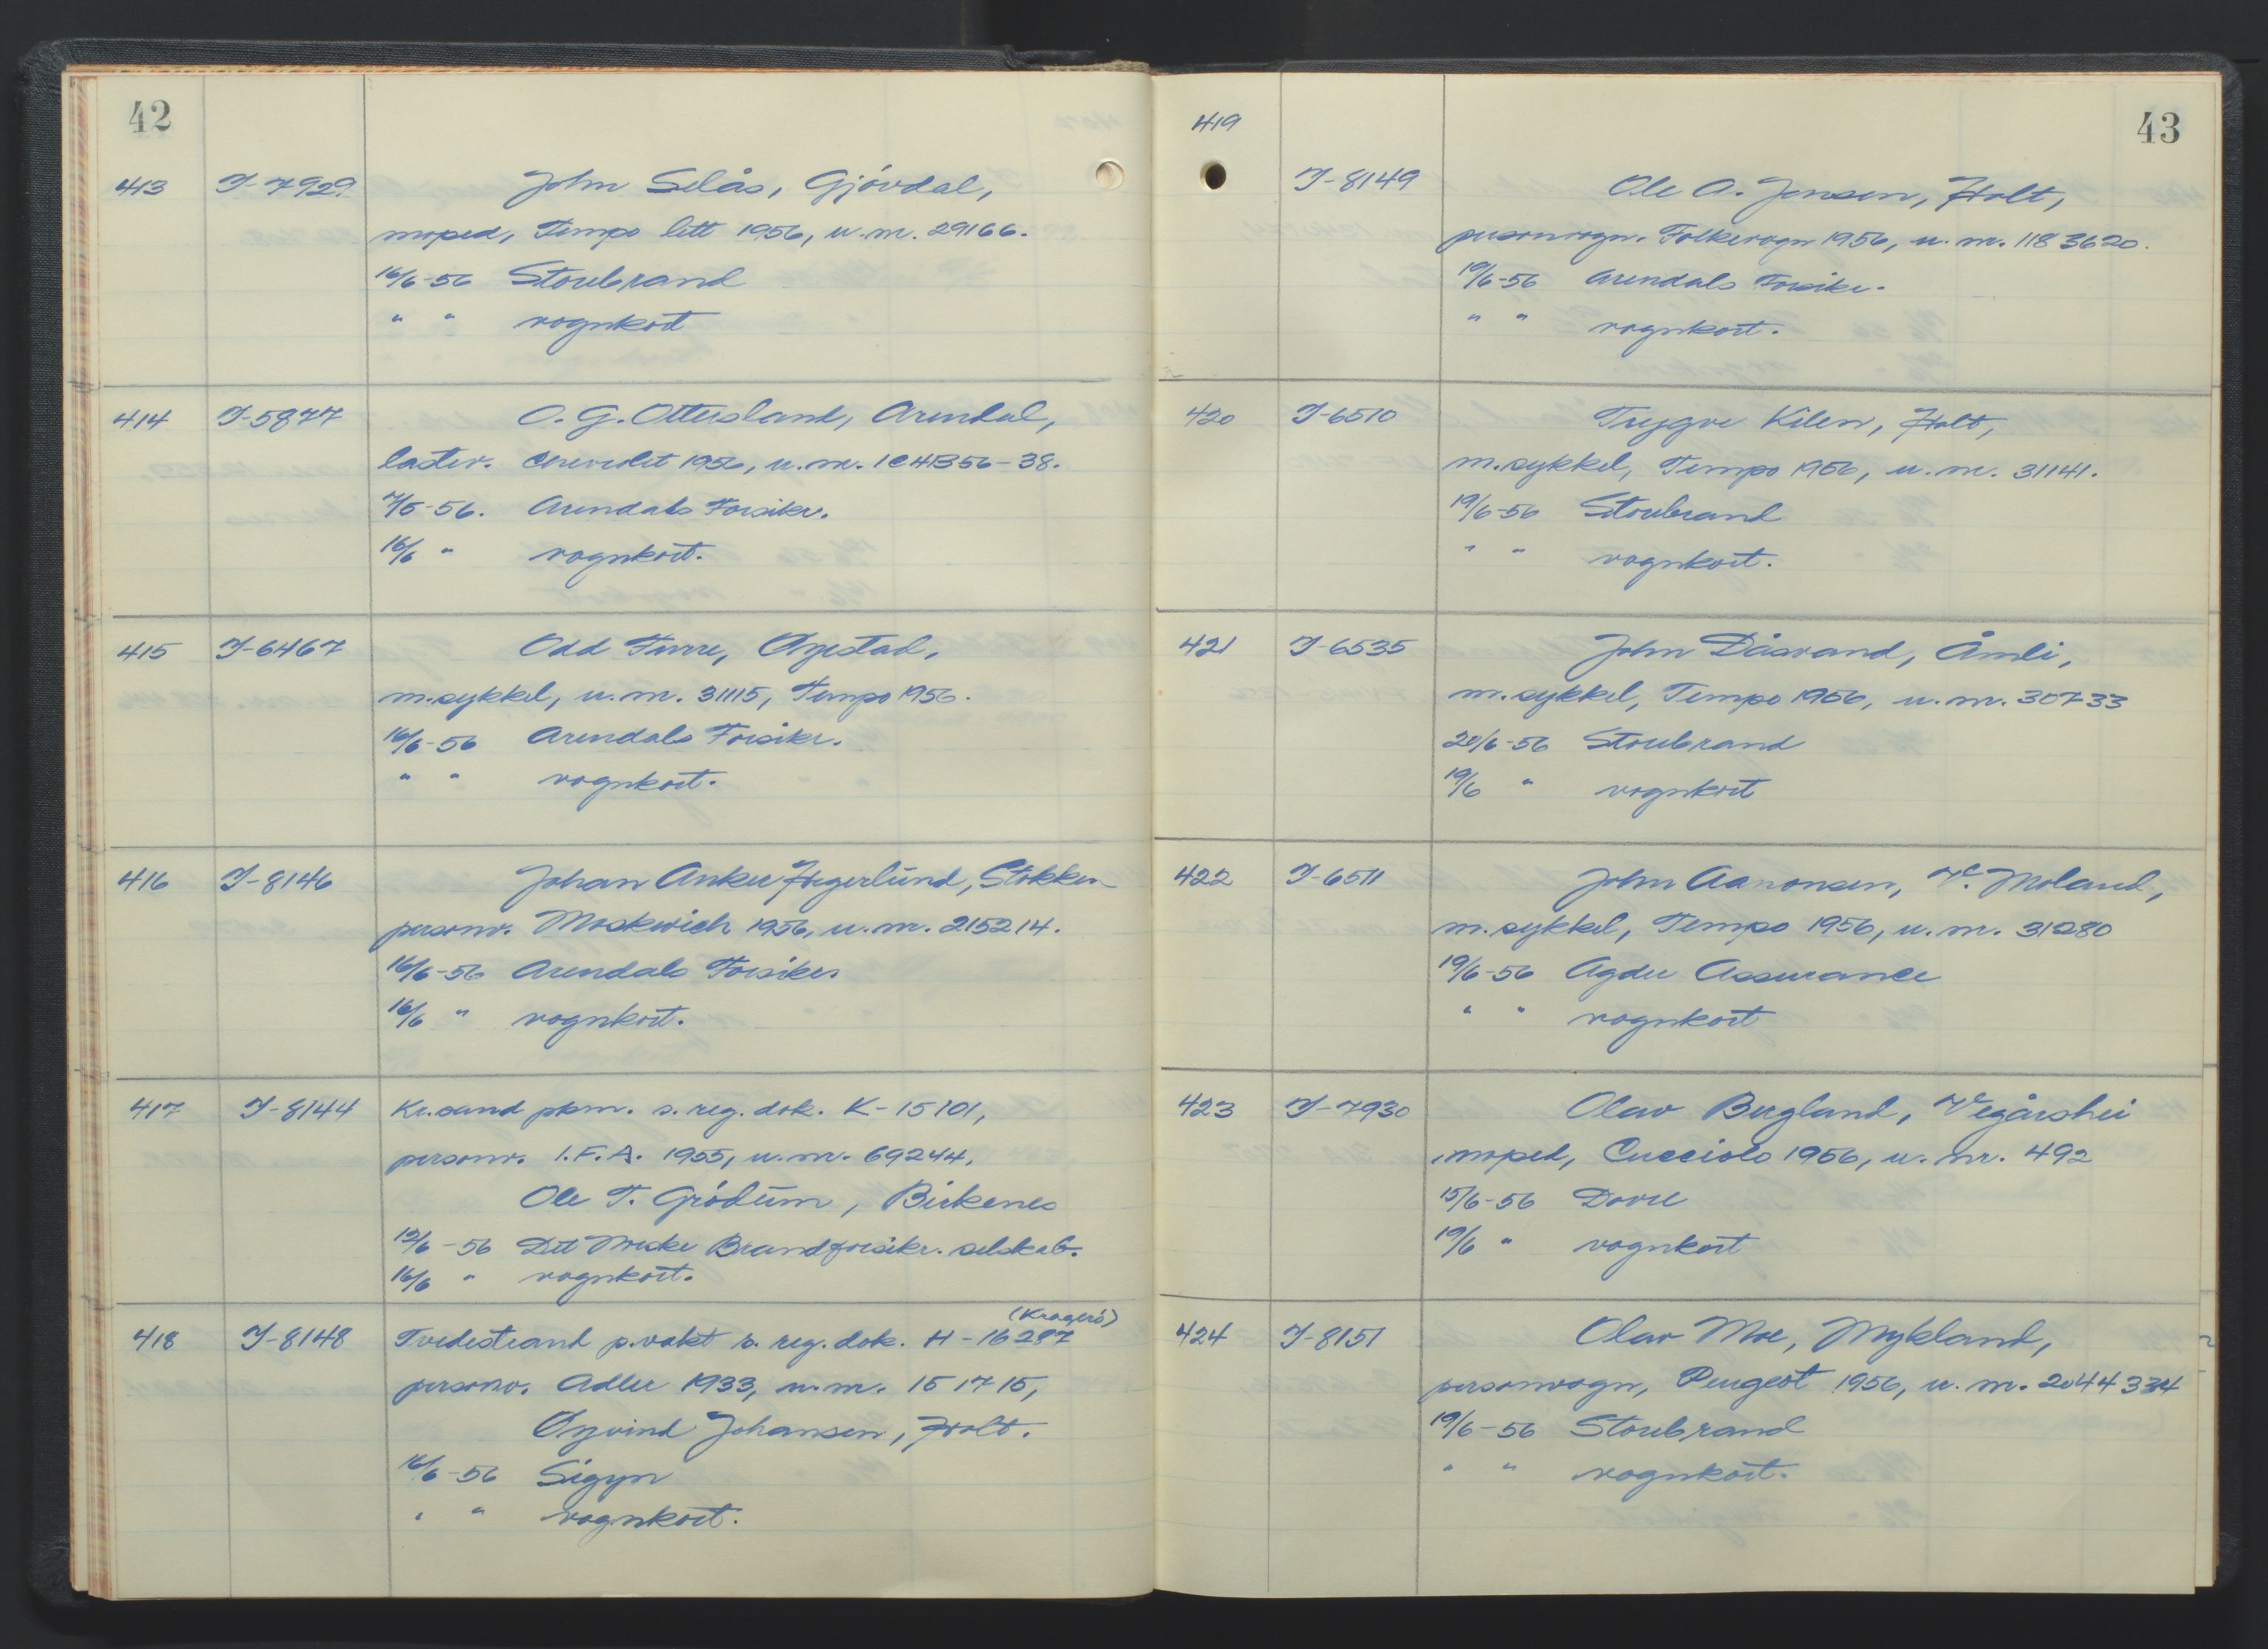 42
413 I-7929 John Selås, Gjövdal,
moped, Tempo lett 1956, u.nr. 29166.
16/6-56 Storebrand
" " vognkort
414 I-5877 O. G. Ottersland, Arendal,
lastev. Chevrolet 1956, u.nr. 1C4B56-38.
7/5-56. Arendals Forsikr.
16/6 " vognkort.
415 I-6467 Odd Furre, Øyestad,
m.sykkel, u.nr. 31115, Tempo 1956.
16/6-56 Arendals Forsikr.
" " vognkort.
416 I-8146 Johan Anker Hegerlund, Stokken
personv. Moskwich 1956, u.nr. 215214.
16/6-56 Arendals Forsikr.
16/6 " vognkort.
417 I-8144 Kr.sand pkm. s. reg. dok. K-15101,
personv. I.F.A. 1955, u.nr. 69244.
Ole T. Grödum, Birkenes
12/6-56 Det Norske Brandforsikr. selskab.
16/6 " vognkort.
(Kragerö)
418 I-8148 Tvedestrand p.vakt s. reg. dok. H-16287
personv. Adler 1933, u.nr. 151715,
Øyvind Johansen, Holt.
16/6-56 Sigyn
" " vognkort.
43
419 I-8149 Ole A. Jensen, Holt,
personvogn. Folkevogn 1956, u.nr. 1183620.
19/6-56 Arendals Forsikr.
" " vognkort.
420 I-6510 Trygve Kilen, Holt,
m.sykkel, Tempo 1956, u.nr. 31141.
19/6-56 Storebrand
" " vognkort.
421 I-6535 John Dåsvand, Åmli,
m.sykkel, Tempo 1956, u.nr. 30733
20/6-56 Storebrand
19/6 " vognkort
422 I-6511 John Aanonsen, V. Moland,
m.sykkel, Tempo 1956, u.nr. 31280
19/6-56 Agder Assurance
" " vognkort
423 I-7930 Olav Bergland, Vegårshei
moped, Cucciolo 1956, u.nr. 492
15/6-56 Dovre
19/6 " vognkort
424 I-8151 Olav Moe, Mykland,
personvogn, Peugeot 1956, u.nr. 2044334
19/6-56 Storebrand
" " vognkort.